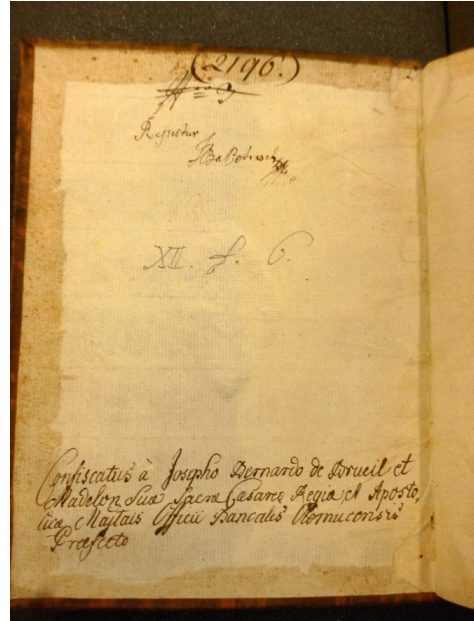 (2196.)
N = 3
XII. f. 6.
Confiscatus à Josepho Bernardo de Brueil et
Madelon Suæ Sacræ Cæsareæ Regiæ et Aposto,
licæ Maÿtais Officii Bancalis Olomucensis
Præfecto